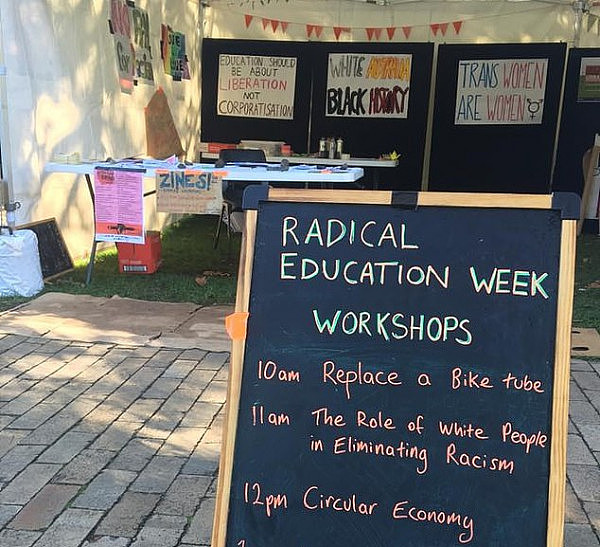 EDUCATION SHOULD
BE ABOUT
LIBERATION
NOT
CORPORATISATION
WHITE AUSTRALIA
BLACK HISTORY
TRANS WOMEN
ARE WOMEN
ZINES!
RADICAL
EDUCATION WEEK
WORKSHOPS
10am Replace a Bike tube
11am The Role of White People
in Eliminating Racism
12pm Circular Economy